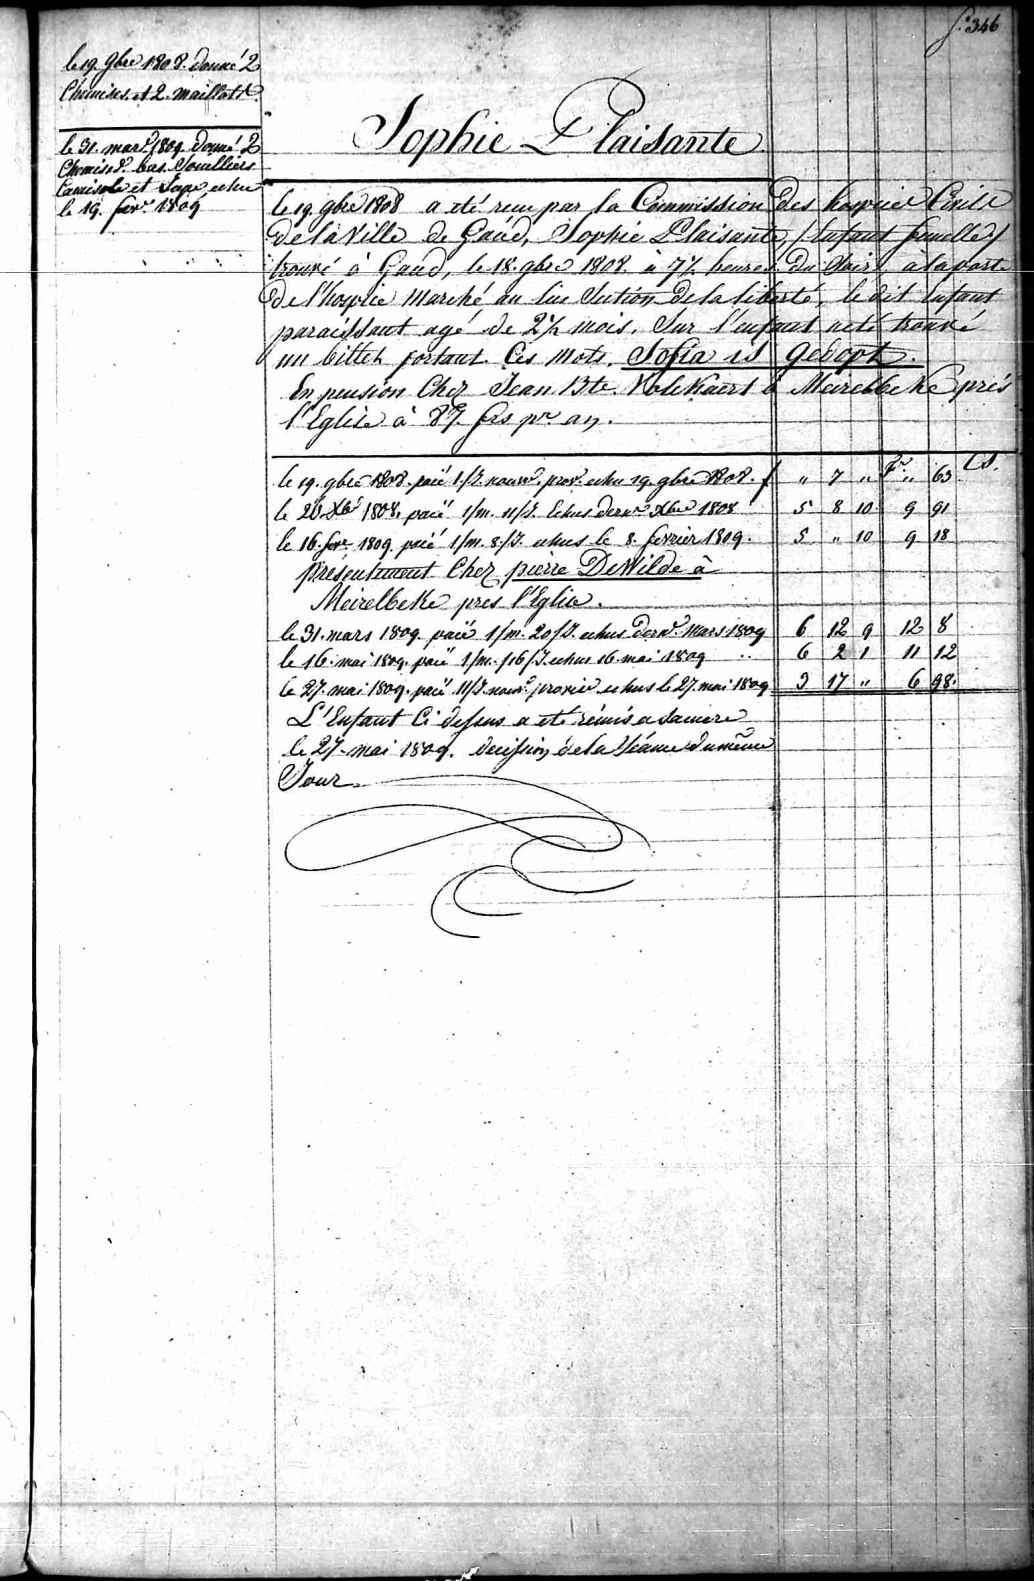 f.° 346
le 19. 9bre 1808. donné 2
Chemises. et 2. maillotts.
le 31. mars 1809. donné 2
Chemises. bas. Souilliers
Camisole et Jupe echu
le 19. fevr. 1809
Sophie Plaisante
le 19 9bre 1808 a eté reçu par la Commission des hospices Civils
de la Ville de Gand, Sophie Plaisante, /Enfant femelle/
trouvé à Gand, le 18. 9bre 1808. à 7½ heures du Soir, à la porte
de l'hospice Marché au lin Section de la liberté, le dit Enfant
paraissant agé de 2½ mois. Sur l'enfant a eté trouvé
un billet portant Ces mots. Sofia is gedopt.
En pension Chez Jean Bte. Volckaert à Meirelbeke prés
l'Eglise à 87. frs pr an.
Fr. Cs.
le 19. 9bre 1808. paié 1/J. nourr. prov. echu 19. 9bre 1808. f „ 7 „ „ 63
le 20 Xbre 1808. paié 1/m. 11/J. Echus dernr. Xbre 1808 5 8 10 9 91
le 16. fevr. 1809. paié 1/m. 8/J. echus le 8. fevrier 1809. 5 „ 10 9 18
présentement Chez pierre DeWilde à
Meirelbeke pres l'Eglise.
le 31. mars 1809. paié 1/m. 20/J. echus dernr. Mars 1809 6 12 9 12 8
le 16. mai 1809. paié 1/m. 16/J. echus 16. mai 1809 6 2 1 11 12
le 27. mai 1809. paié 11/J. nourr. provis. echus le 27. mai 1809 3 17 „ 6 98.
L'Enfant Ci dessus a eté rémis a sa mere
le 27. mai 1809. decission de la Séance du même
Jour.